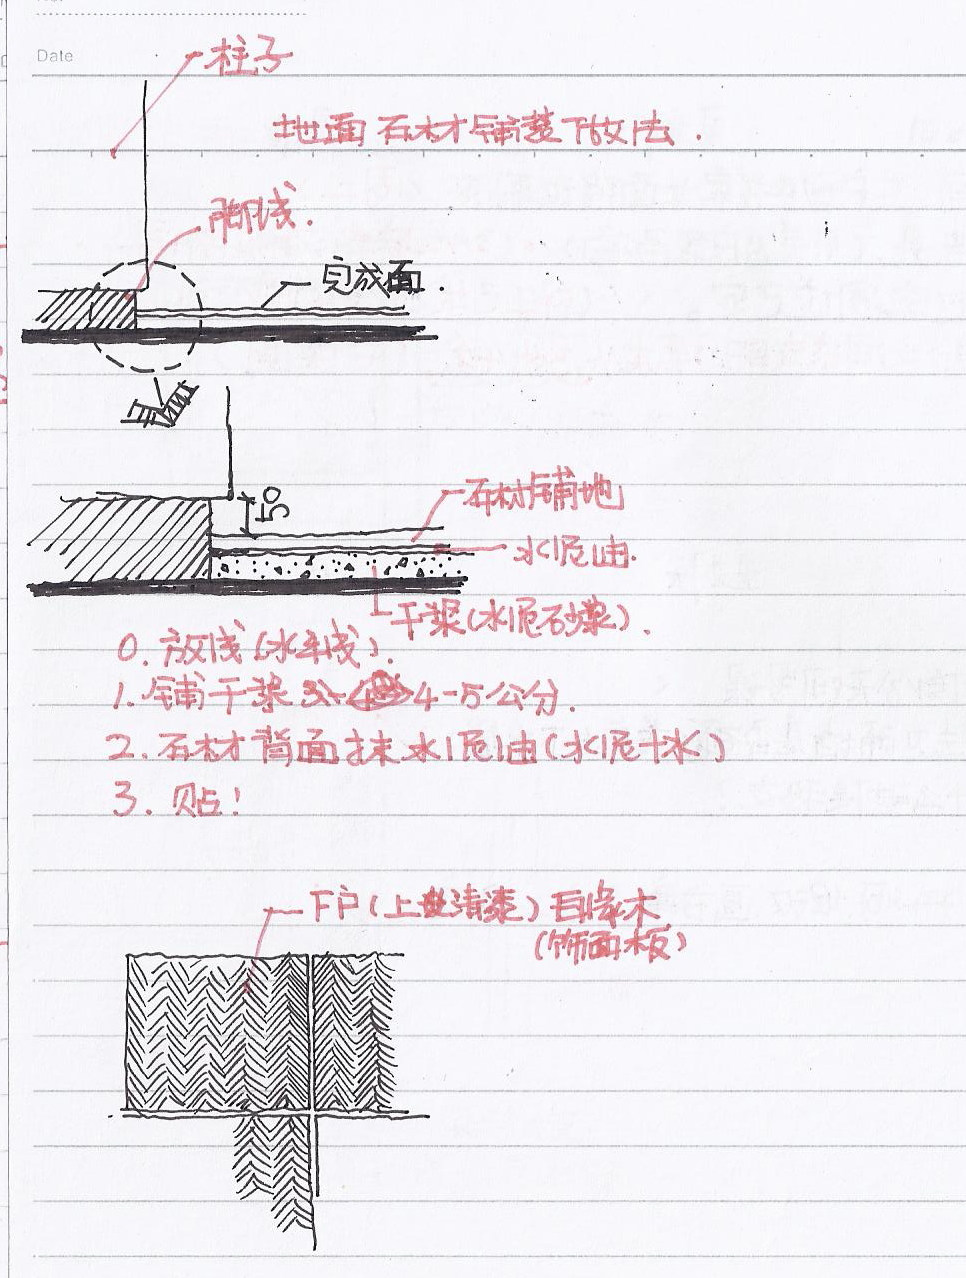 Date
柱子
地面石材铺装做法.
脚线.
完成面.
50
石材铺地
水泥油.
干浆(水泥砂浆).
0. 放线(水平线).
1. 铺干浆 4-5公分.
2. 石材背面抹水泥油(水泥+水)
3. 贴!
(上 清漆)
(饰面板)